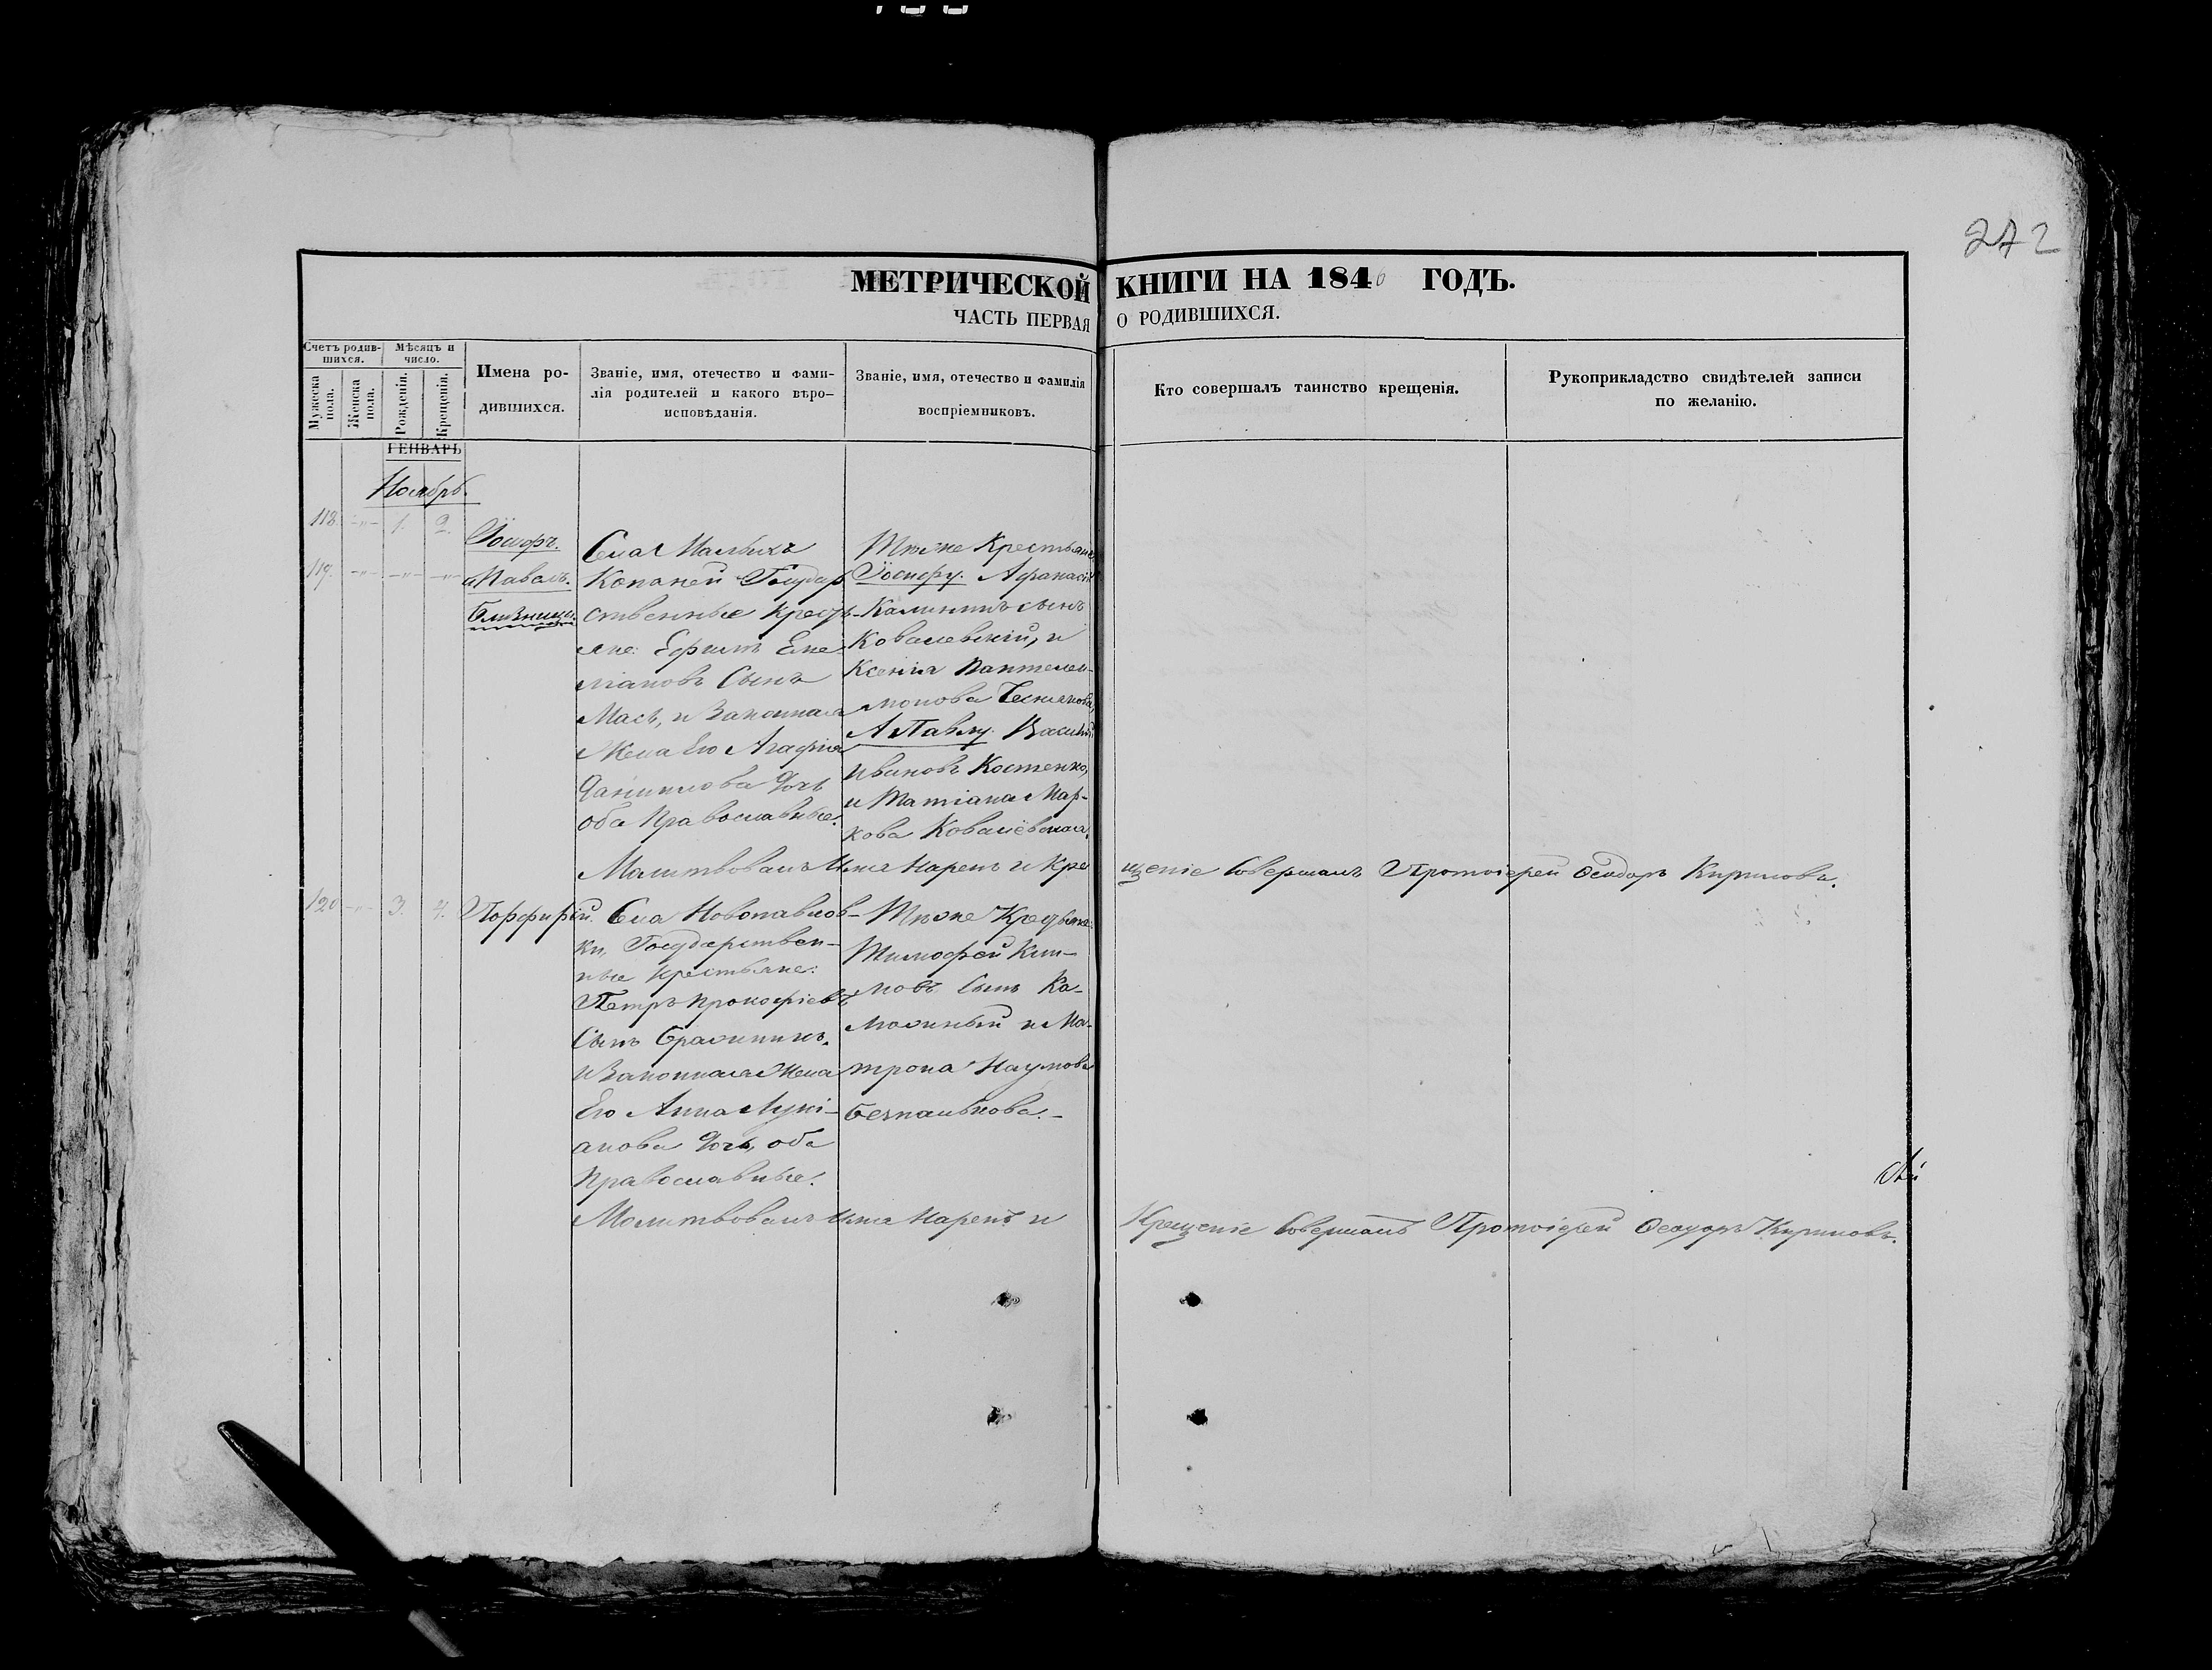 272
МЕТРИЧЕСКОЙ КНИГИ НА 1846 ГОДЪ.
ЧАСТЬ ПЕРВАЯ О РОДИВШИХСЯ.
Счетъ родив-
шихся.
Мужеска пола.
Женска пола.
Мѣсяцъ и
число.
Рожденія.
Крещенія.
Имена ро-
дившихся.
Званіе, имя, отечество и фами-
лія родителей и какого вѣро-
исповѣданія.
Званіе, имя, отечество и фамилія
воспріемниковъ.
Кто совершалъ таинство крещенія.
Рукоприкладство свидѣтелей записи
по желанію.
ГЕНВАРЬ
Ноябрь.
118. -"- 1. 2.
Іосифъ.
119. -"- -"- -"-
и Павелъ.
близнецы.
Села Малыхъ
Копаней Государ
ственные кресть-
яне: Ефимъ Еме
ліановъ Сынъ
Мась, и Законная
Жена Его Агафія
Даниилова Дочь
оба Православные.
Тѣже Крестьяне
Іосифу. Афанасій
Калининъ сынъ
Ковалевскій, и
Ксенія Пантелеи-
монова
А Павлу. Василій
Ивановъ Костенко,
и Татіана Мар-
кова Ковалевская.
Молитвовалъ Имя Нарекъ и Кре
щеніе Совершалъ Протоіерей Ѳеодоръ Кириловъ.
120 -"- 3. 4. Порфирій.
Села Новопавлов-
ки, Государствен-
ные Крестьяне:
Петръ Прокофіевъ
Сынъ
и Законная Жена
Его Анна Лукі-
анова Дочь, оба
Православные.
Тѣже Крестьяне:
Тимофей Кли-
мовъ Сынъ Ка-
и Ма-
трона Наумова
Безпалькова.-
Молитвовалъ Имя Нарекъ и
Крещеніе Совершалъ Протоіерей Ѳеодоръ Кириловъ.